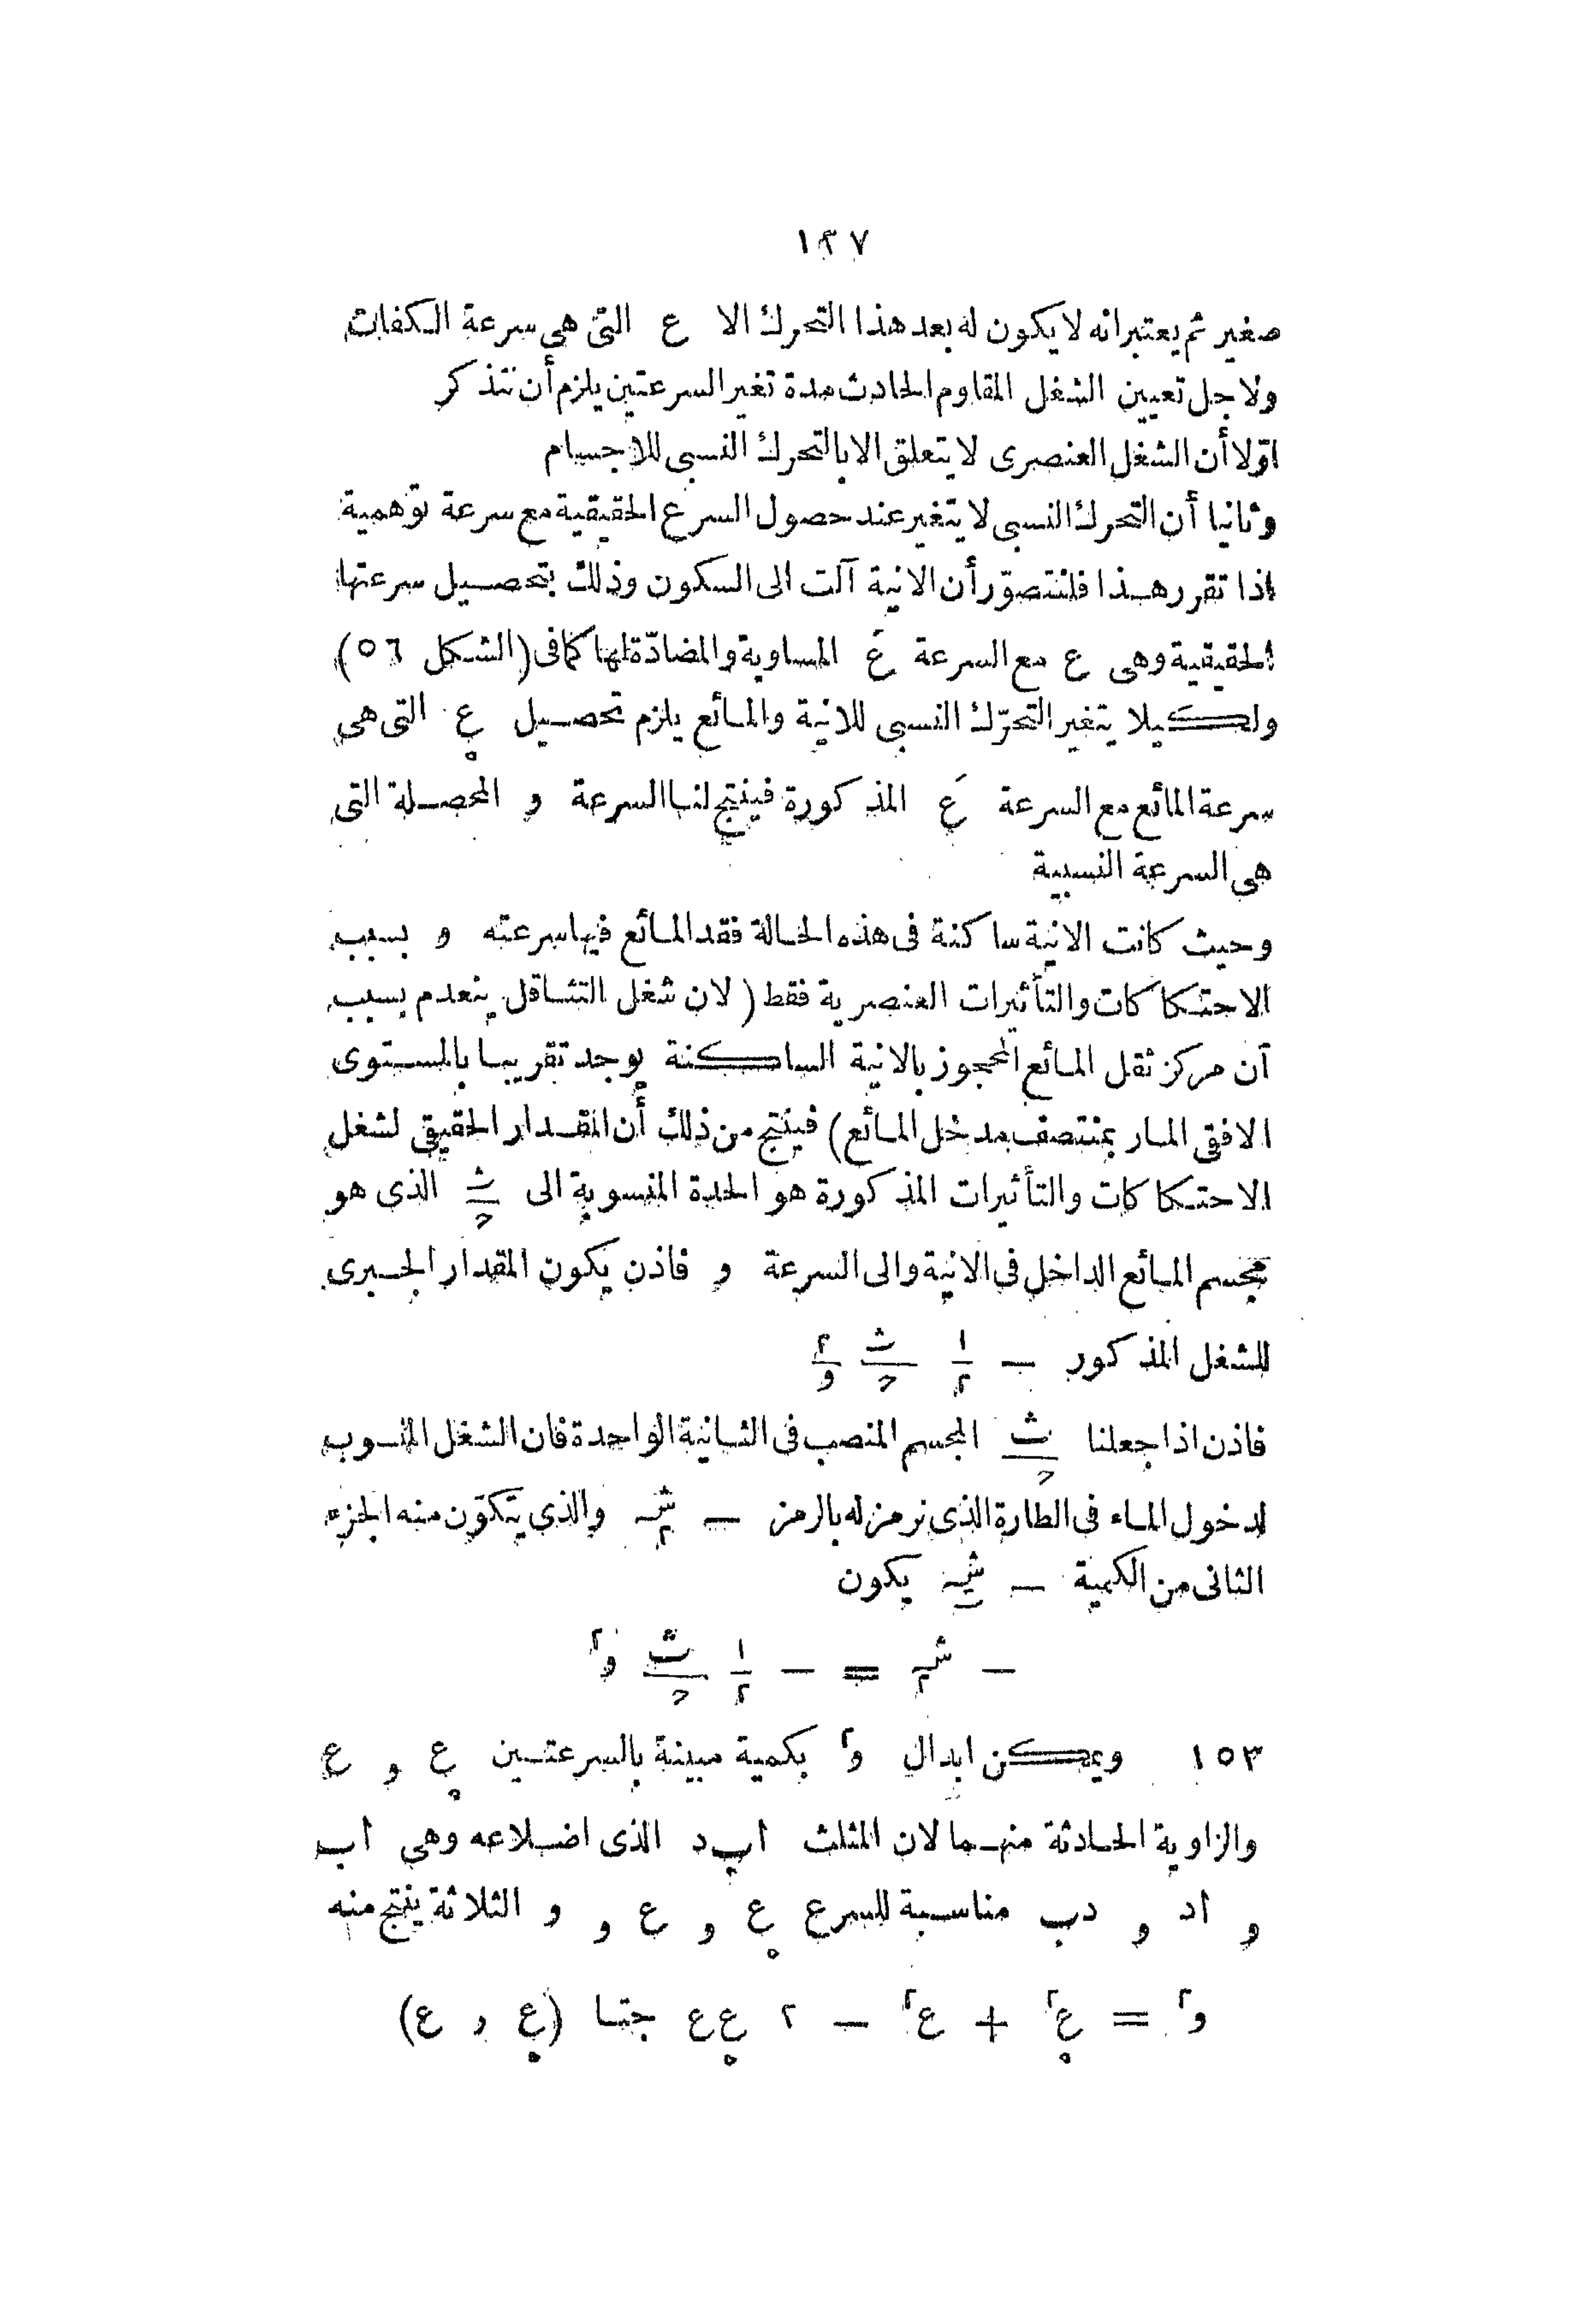 ١٢٧
صغير ثم يعتبر انه لا يكون له بعد هذا التحرك الا ع التى هى سرعة الكفات
ولاجل تعيين الشغل المقاوم الحادث مدة تغير السرعتين يلزم أن نتذكر
اوّلا أن الشغل العنصرى لا يتعلق الا بالتحرك النسبى للاجسام
وثانيا أن التحرك النسبى لا يتغير عند حصول السرع الحقيقية مع سرعة توهمية
اذا تقرر هذا فلنتصوّر أن الانية آلت الى السكون وذلك بتحصيل سرعتها
الحقيقية وهى ع مع السرعة عَ المساوية والمضادّة لها كما فى (الشكل ٥٦)
ولكيلا يتغير التحرّك النسبى للانية والمائع يلزم تحصيل ع. التى هى
سرعة المائع مع السرعة عَ المذكورة فينتج لنا السرعة و المحصلة التى
هى السرعة النسبية
وحيث كانت الانية ساكنة فى هذه الحالة فقد المائع فيها سرعته و بسبب
الاحتكاكات والتأثيرات العنصرية فقط (لان شغل التثاقل ينعدم بسبب
أن مركز ثقل المائع المحجوز بالانية الساكنة يوجد تقريبا بالمستوى
الافقى المار بمنتصف مدخل المائع) فينتج من ذلك أن المقدار الحقيقى لشغل
الاحتكاكات والتأثيرات المذكورة هو الحدة المنسوبة الى ث/ح الذى هو
مجسم المائع الداخل فى الانية والى السرعة و فاذن يكون المقدار الجبرى
للشغل المذكور — ١/٢ ث/ح ٢/و
فاذن اذا جعلنا ث/ح المجسم المنصب فى الثانية الواحدة فان الشغل المنسوب
لدخول الماء فى الطارة الذى نرمز له بالرمز — شـ٢ والذي يتكوّن منه الجزء
الثانى من الكمية — شـ يكون
— شـ٢ = — ١/٢ ث/ح و٢
١٥٣ ويمكن ابدال و٢ بكمية مبينة بالسرعتين ع. و ع
والزاوية الحادثة منهما لان المثلث ابد الذى اضلاعه وهى اب
و اد و دب مناسبة للسرع ع. و ع و و الثلاثة ينتج منه
و٢ = ع.٢ + ع٢ — ٢ ع.ع جتا (ع. و ع)